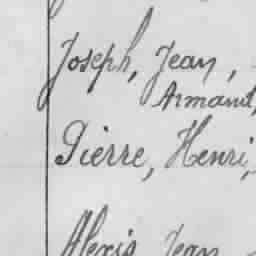 Joseph, Jean,
Armand,
Pierre, Henri,
Alexis Jean